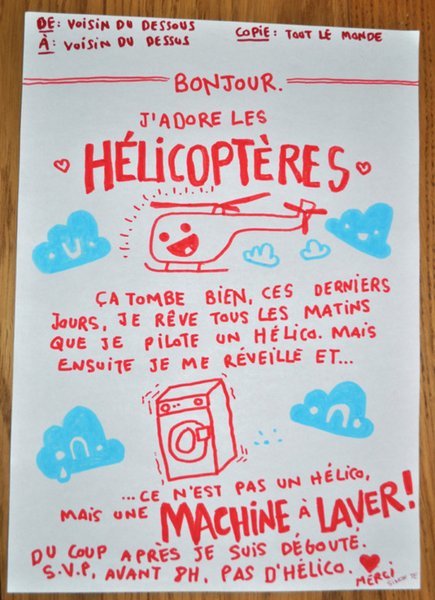 DE: VOISIN DU DESSOUS
À: VOISIN DU DESSUS
COPIE: TOUT LE MONDE
BONJOUR.
J'ADORE LES
HÉLICOPTÈRES
ÇA TOMBE BIEN, CES DERNIERS
JOURS, JE RÊVE TOUS LES MATINS
QUE JE PILOTE UN HÉLICO. MAIS
ENSUITE JE ME RÉVEILLE ET...
...CE N'EST PAS UN HÉLICO,
MAIS UNE MACHINE À LAVER!
DU COUP APRÈS JE SUIS DÉGOUTÉ.
S.V.P, AVANT 8H, PAS D'HÉLICO.
MERCI